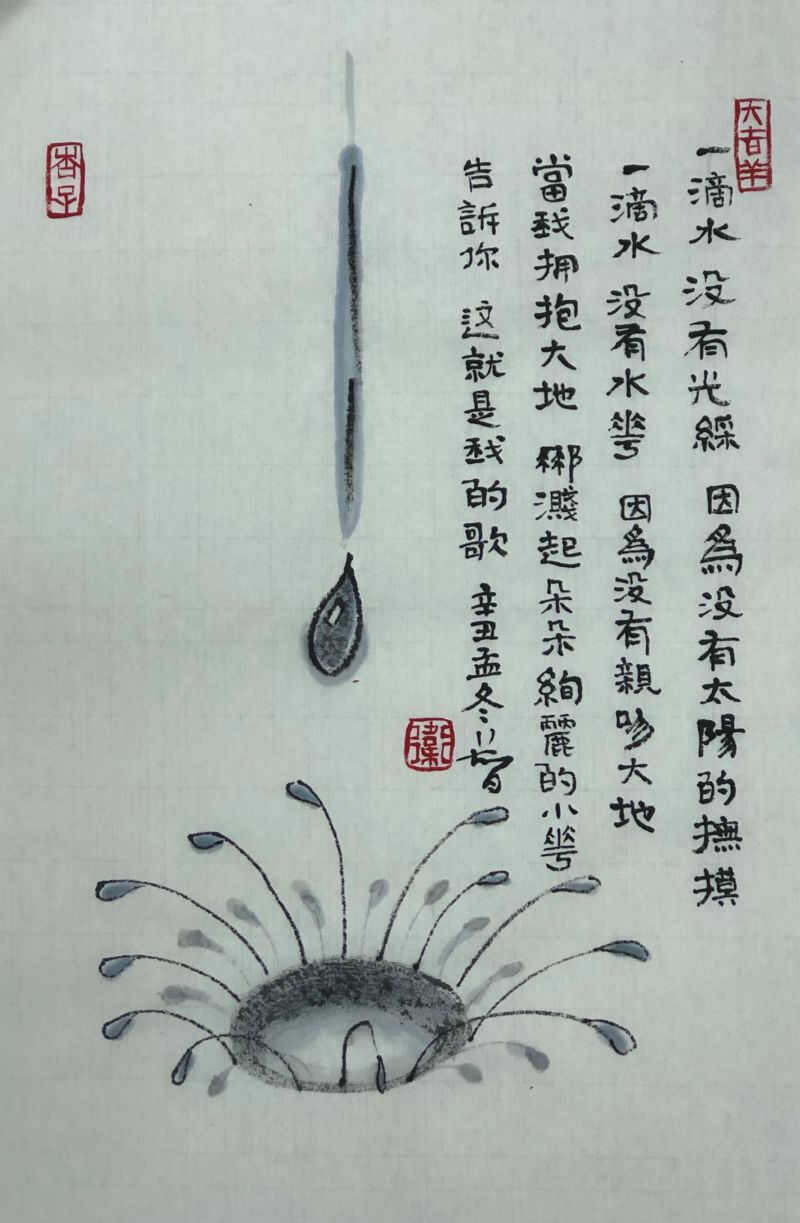 一滴水 没有光綵 因為没有太陽的撫摸
一滴水 没有水華 因為没有親吻大地
當我拥抱大地 濺起朵朵絢麗的小華
告訴你 这就是我的歌 辛丑孟冬
杏子